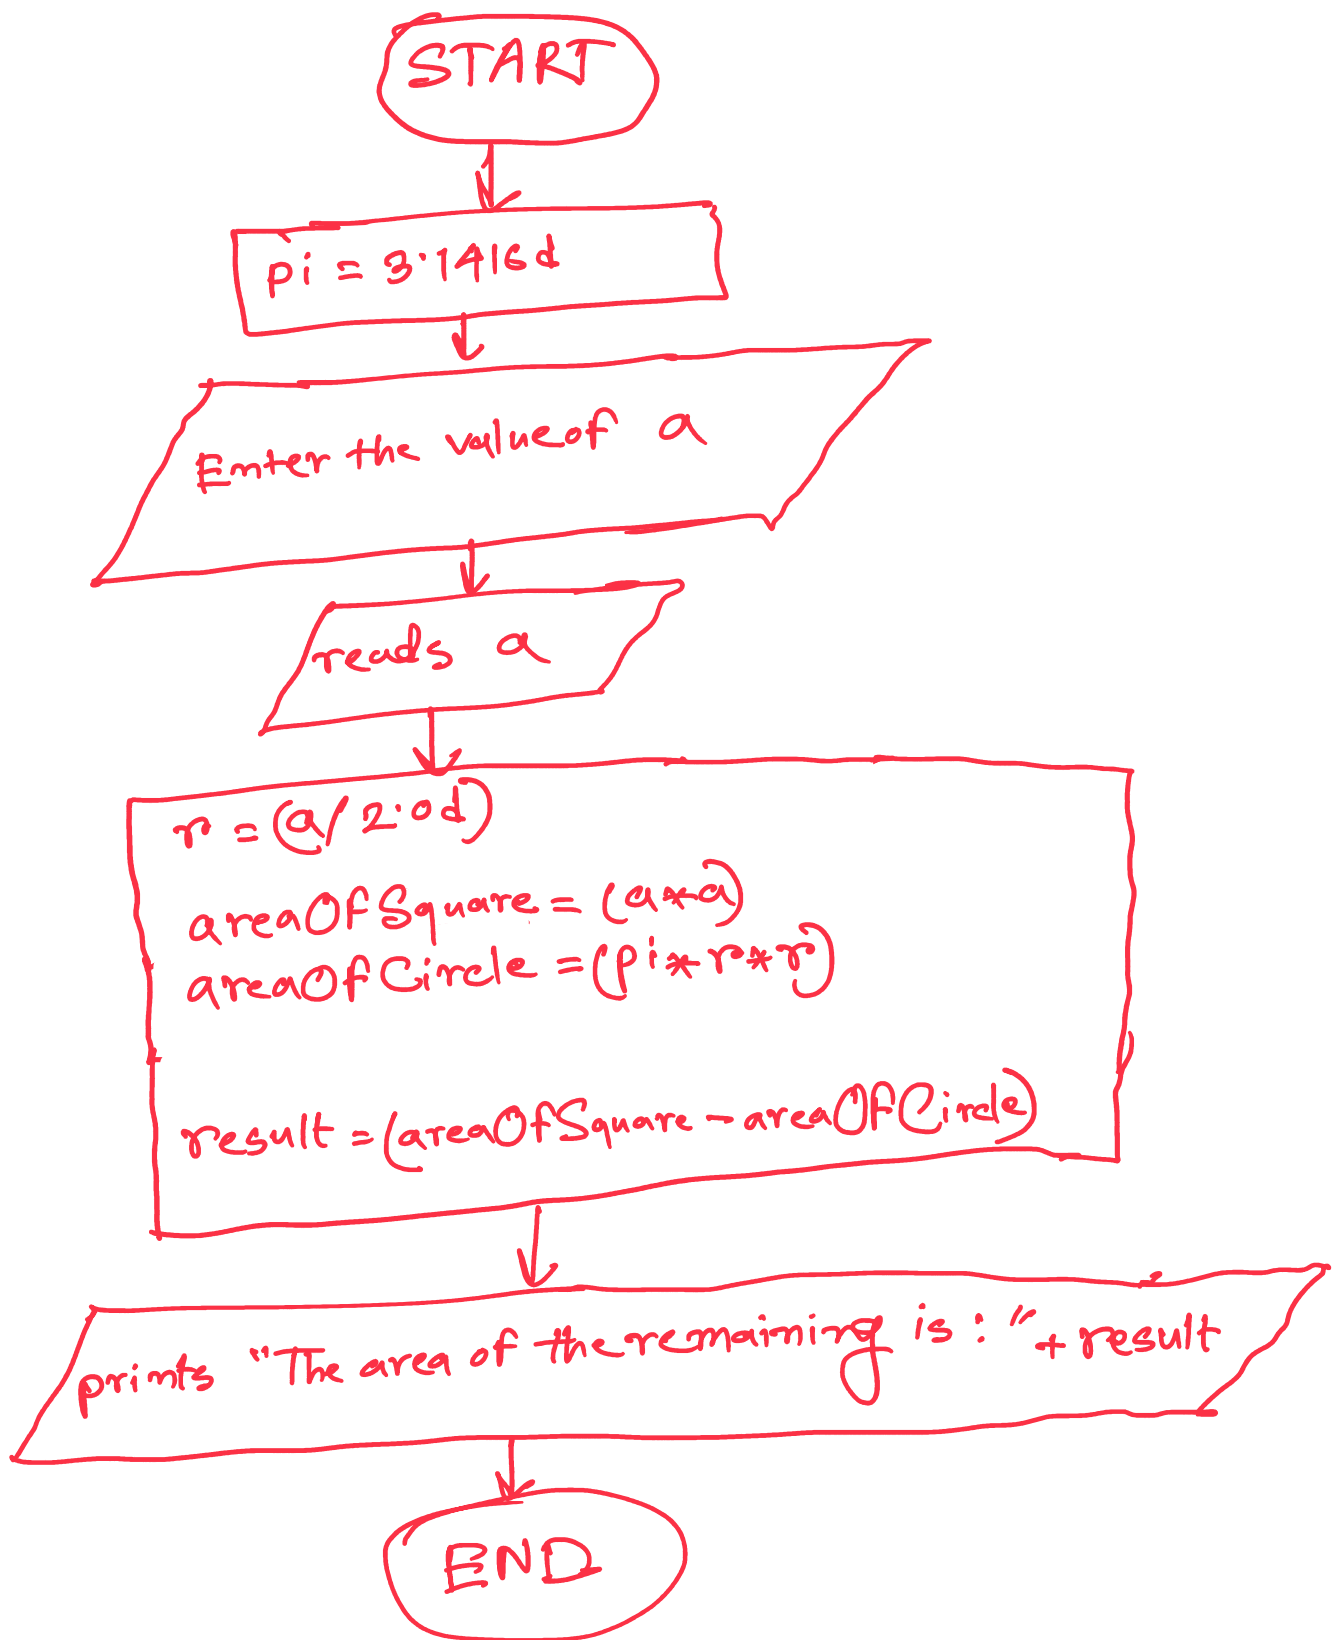 START
pi = 3.1416d
Enter the value of a
reads a
r = (a/2.0d)
areaOfSquare = (a*a)
areaOfCircle = (pi*r*r)
result = (areaOfSquare - areaOfCircle)
prints "The area of the remaining is: " + result
END